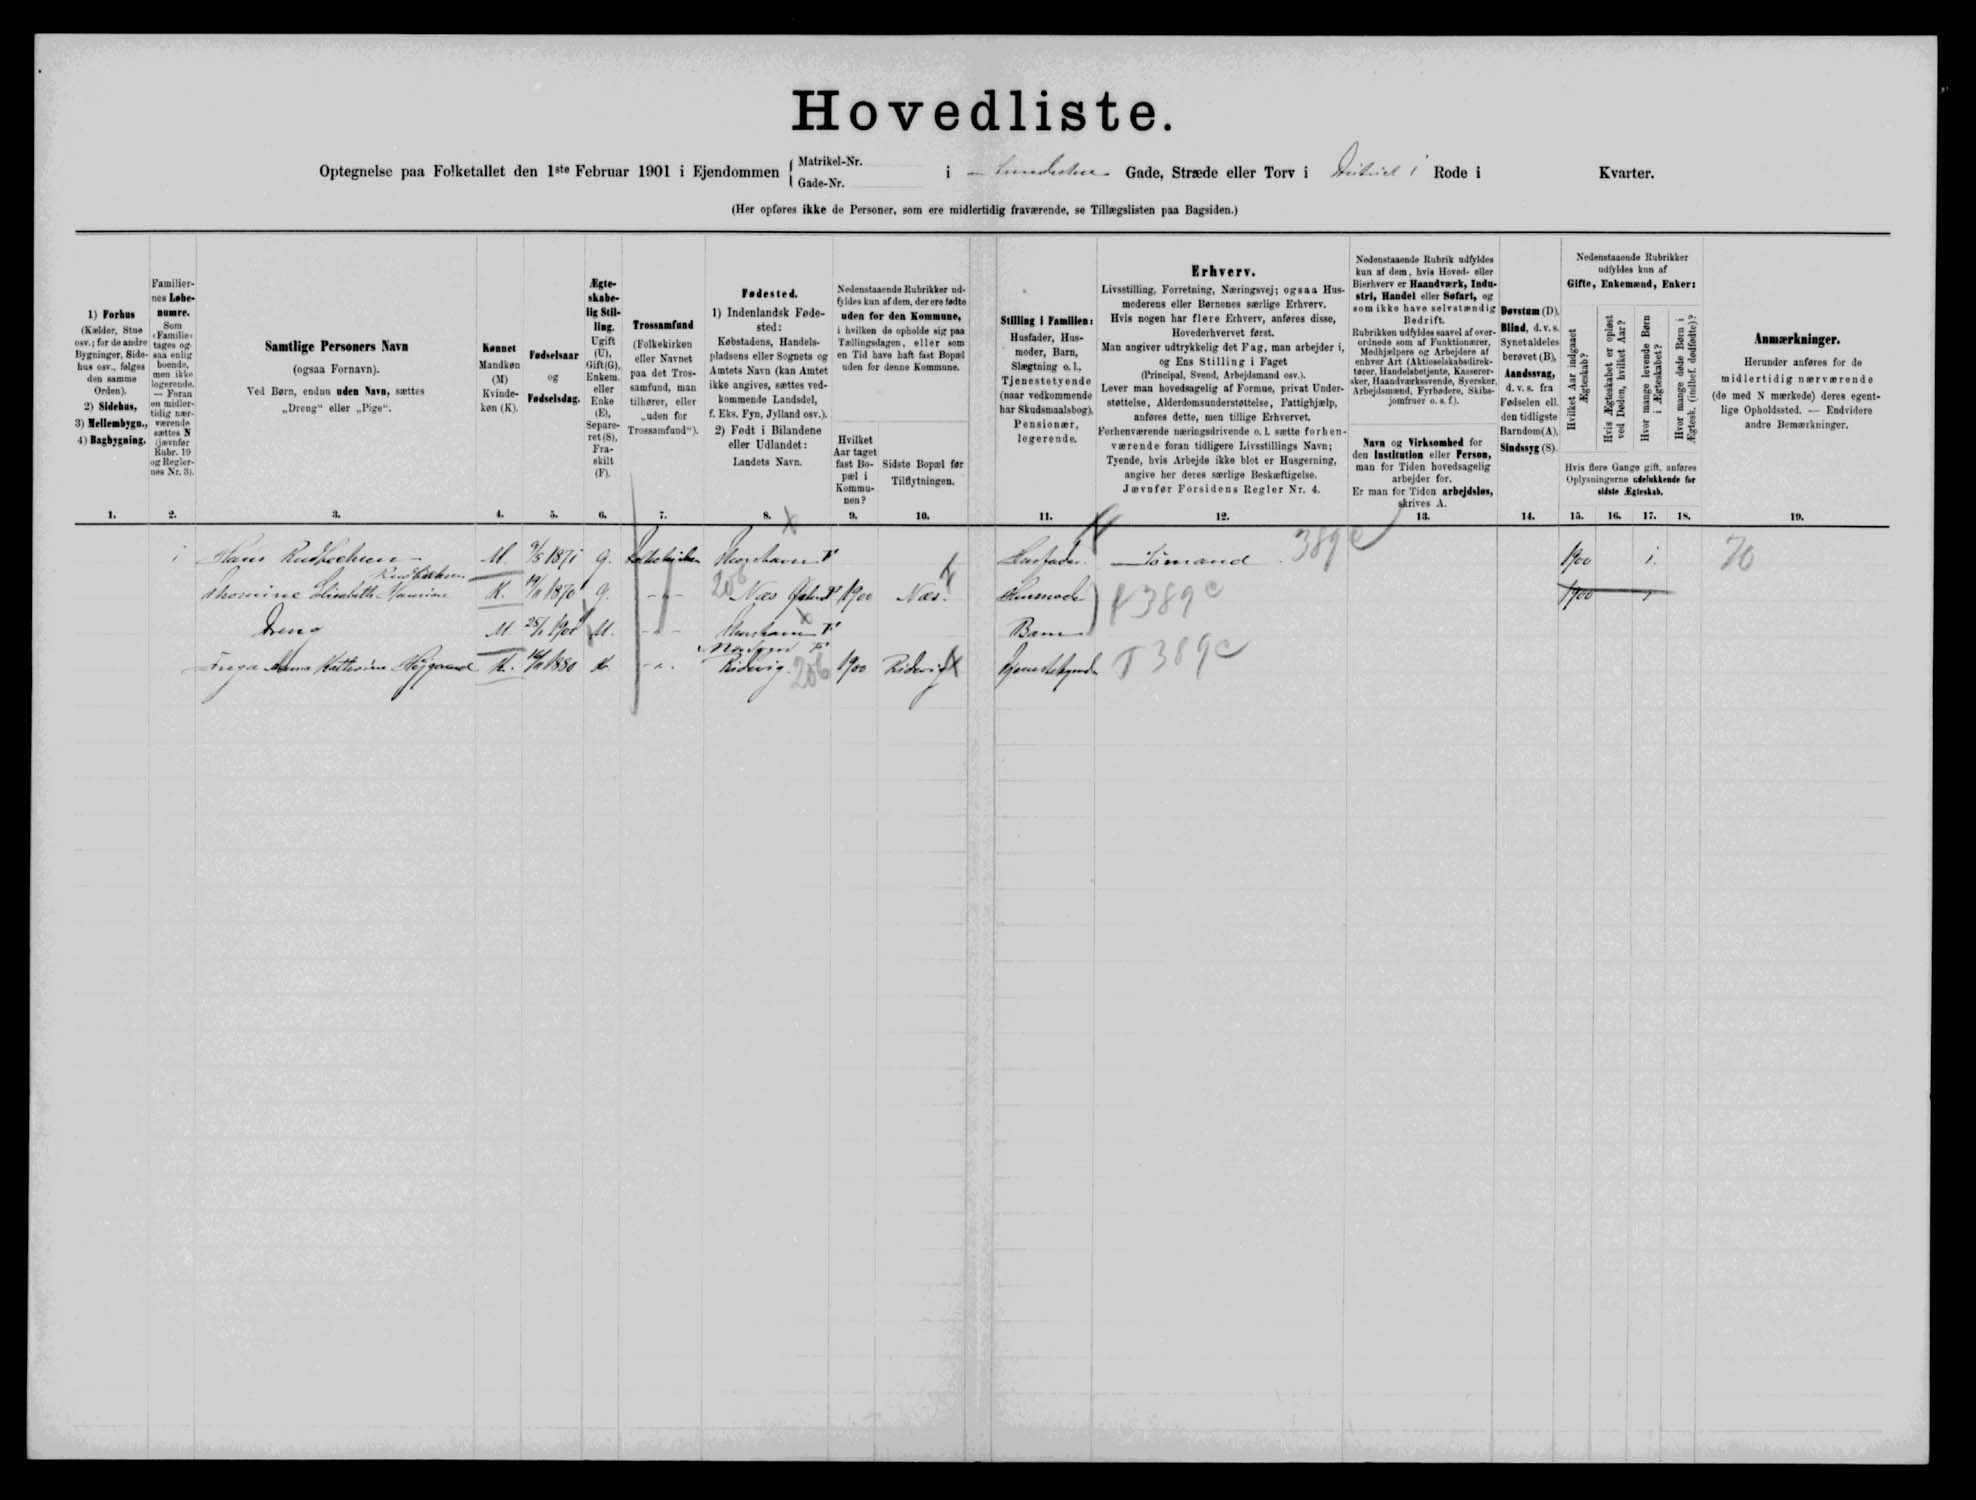 Hovedliste.
Optegnelse paa Folketallet den 1ste Februar 1901 i Ejendommen { Matrikel-Nr. Gade-Nr. i Gade, Stræde eller Torv i District 1 Rode i Kvarter.
(Her opføres ikke de Personer, som ere midlertidig fraværende, se Tillægslisten paa Bagsiden.)
1) Forhus
(Kælder, Stue
osv.; for de andre
Bygninger, Side-
hus osv., følges
den samme
Orden).
2) Sidehus,
3) Mellembygn.,
4) Bagbygning.
Familier-
nes Løbe-
numre.
Som
«Familie»
tages og-
saa enlig
boende,
men ikke
logerende.
— Foran
en midler-
tidig nær-
værende
sættes N
(jævnfør
Rubr. 19
og Regler-
nes Nr. 3).
Samtlige Personers Navn
(ogsaa Fornavn).
Ved Børn, endnu uden Navn, sættes
„Dreng“ eller „Pige“.
Kønnet
Mandkøn
(M)
Kvinde-
køn (K).
Fødselsaar
og
Fødselsdag.
Ægte-
skabe-
lig Stil-
ling.
Ugift
(U),
Gift(G),
Enkem.
eller
Enke
(E),
Separe-
ret (S),
Fra-
skilt
(F).
Trossamfund
(Folkekirken
eller Navnet
paa det Tros-
samfund, man
tilhører, eller
„uden for
Trossamfund“).
Fødested.
1) Indenlandsk Føde-
sted:
Købstadens, Handels-
pladsens eller Sognets og
Amtets Navn (kan Amtet
ikke angives, sættes ved-
kommende Landsdel,
f. Eks. Fyn, Jylland osv.).
2) Født i Bilandene
eller Udlandet:
Landets Navn.
Nedenstaaende Rubrikker ud-
fyldes kun af dem, der ere fødte
uden for den Kommune,
i hvilken de opholde sig paa
Tællingsdagen, eller som
en Tid have haft fast Bopæl
uden for denne Kommune.
Hvilket
Aar taget
fast Bo-
pæl i
Kommu-
nen?
Sidste Bopæl før
Tilflytningen.
Stilling i Familien:
Husfader, Hus-
moder, Barn,
Slægtning o. l.,
Tjenestetyende
(naar vedkommende
har Skudsmaalsbog),
Pensionær,
logerende.
Erhverv.
Livsstilling, Forretning, Næringsvej; ogsaa Hus-
moderens eller Børnenes særlige Erhverv.
Hvis nogen har flere Erhverv, anføres disse,
Hovederhvervet først.
Man angiver udtrykkelig det Fag, man arbejder i,
og Ens Stilling i Faget
(Principal, Svend, Arbejdsmand osv.).
Lever man hovedsagelig af Formue, privat Under-
støttelse, Alderdomsunderstøttelse, Fattighjælp,
anføres dette, men tillige Erhvervet.
Forhenværende næringsdrivende o. l. sætte forhen-
værende foran tidligere Livsstillings Navn;
Tyende, hvis Arbejde ikke blot er Husgerning,
angive her deres særlige Beskæftigelse.
Jævnfør Forsidens Regler Nr. 4.
Nedenstaaende Rubrik udfyldes
kun af dem, hvis Hoved- eller
Bierhverv er Haandværk, Indu-
stri, Handel eller Søfart, og
som ikke have selvstændig
Bedrift.
Rubrikken udfyldes saavel af over-
ordnede som af Funktionærer,
Medhjælpere og Arbejdere af
enhver Art (Aktieselskabsdirek-
tører, Handelsbetjente, Kasserer-
sker, Haandværkssvende, Syersker,
Arbejdsmænd, Fyrbødere, Skibs-
jomfruer o. s. f.).
Navn og Virksomhed for
den Institution eller Person,
man for Tiden hovedsagelig
arbejder for.
Er man for Tiden arbejdsløs,
skrives A.
Døvstum (D),
Blind, d. v. s.
Synet aldeles
berøvet (B),
Aandssvag,
d. v. s. fra
Fødselen ell.
den tidligste
Barndom(A),
Sindssyg (S).
Nedenstaaende Rubrikker
udfyldes kun af
Gifte, Enkemænd, Enker:
Hvilket Aar indgaaet Ægteskab?
Hvis Ægteskabet er opløst ved Døden, hvilket Aar?
Hvor mange levende Børn i Ægteskabet?
Hvor mange døde Børn i Ægtesk. (indbef. dødfødte)?
Hvis flere Gange gift, anføres
Oplysningerne udelukkende for
sidste Ægteskab.
Anmærkninger.
Herunder anføres for de
midlertidig nærværende
(de med N mærkede) deres egent-
lige Opholdssted. — Endvidere
andre Bemærkninger.
1. 2. 3. 4. 5. 6. 7. 8. 9. 10. 11. 12. 13. 14. 15. 16. 17. 18. 19.
1 Hans M. 9/5 1871 G. Folkekirken Thorshavn Husfader 389c 1900 1. 70
Elisabeth K. 19/11 1870 G. -"- Næs 206 1900 Næs. Husmoder 389c 1900
Dreng M. 25/1 1900 Thorshavn Barn
Inga Anna Kathrine Højgaard K. 1880 -"- 206 1900 Tjenestetyende T 389c